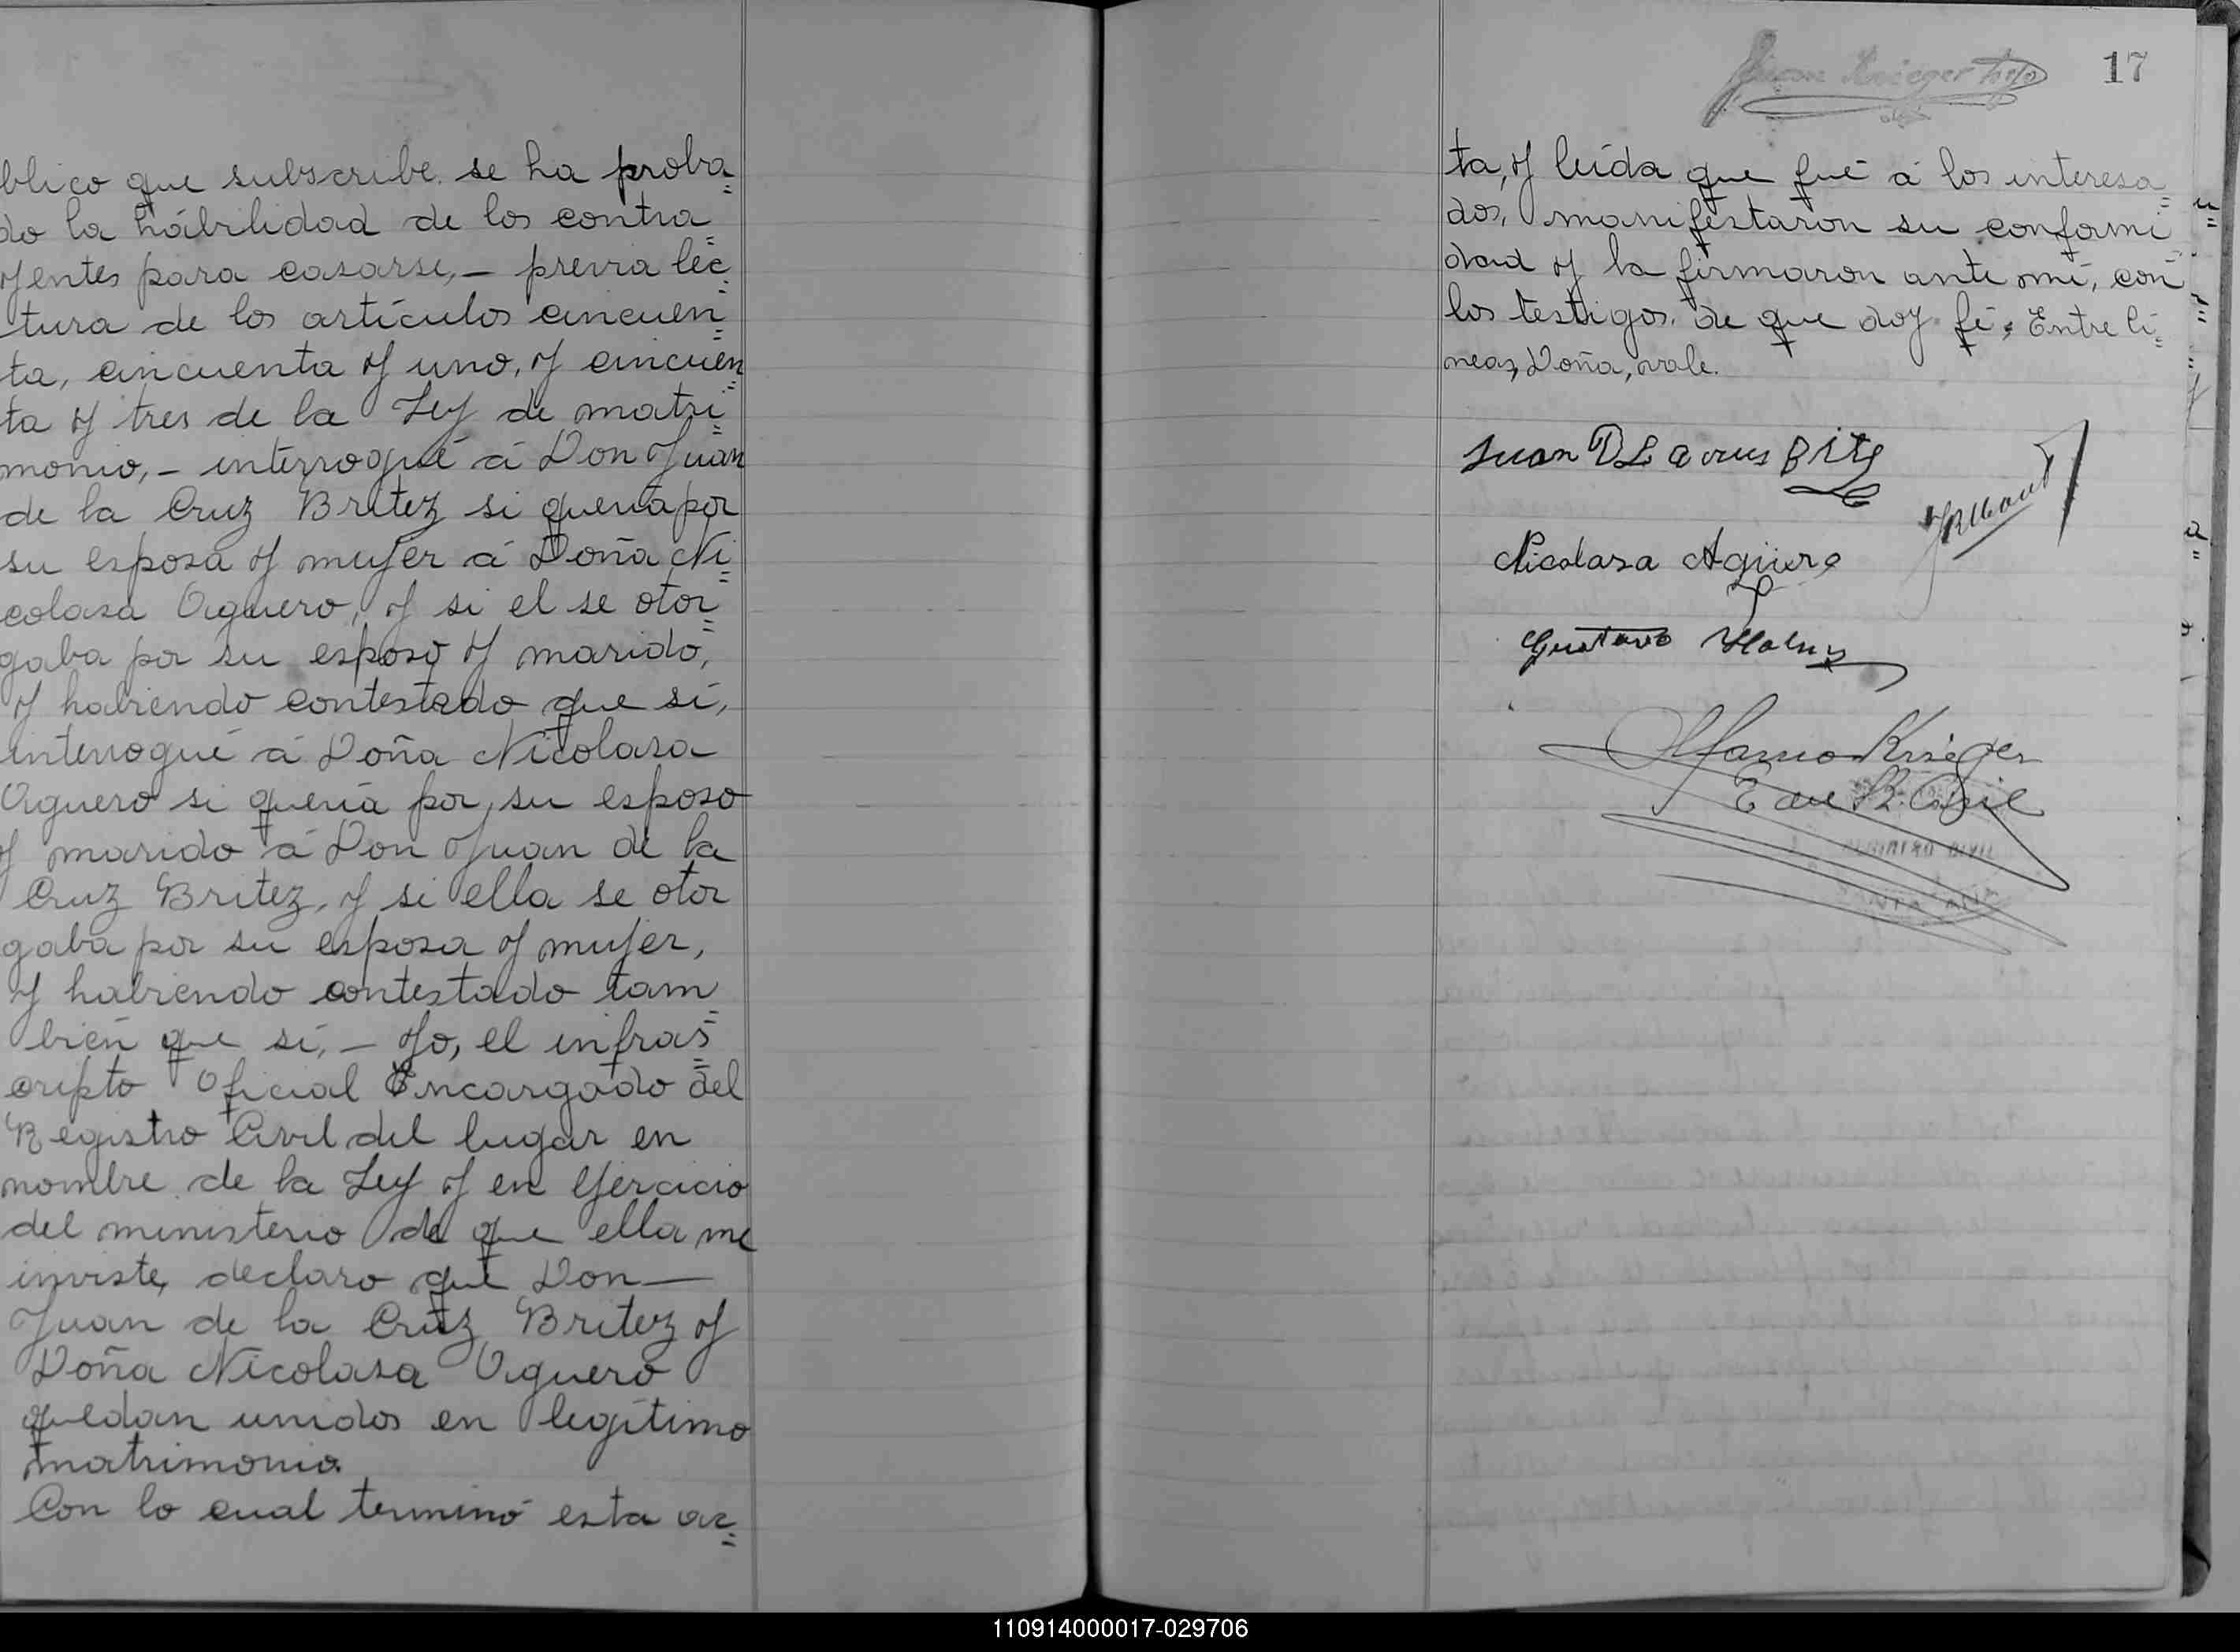 blico que subscribe se ha proba=
do la hábilidad de los contra=
yentes para casarse,— previa lec=
tura de los artículos cincuen=
ta, cincuenta y uno, y cincuen=
ta y tres de la Ley de matri=
monio,— interrogué á Don Juan
de la Cruz Britez si queria por
su esposa y mujer á Doña Ni=
colasa Aguero, y si el se otor=
gaba por su esposo y marido,
y habiendo contestado que sí,
interrogué á Doña Nicolasa
Aguero si quería por su esposo
y marido á Don Juan de la
Cruz Britez, y si ella se otor
gaba por su esposa y mujer,
y habiendo contestado tam=
bién que sí,— Yo, el infras=
cripto Oficial Encargado del
Registro Civil del lugar en
nombre de la Ley y en ejercicio
del ministerio de que ella me
inviste, declaro que Don—
Juan de la Cruz Britez y
Doña Nicolasa Aguero
quedan unidos en legítimo
matrimonio.
Con lo cual terminó esta ac=
Juan Krieger
17
ta, y leída que fué á los interesa=
dos, manifestaron su conformi=
dad y la firmaron ante mí, con
los testigos de que doy fé, Entre lí=
neas, Doña, vale.
Juan DLacrus Brits
Nicolasa Aguero
Gustavo
Krieger
E del R. Civil
110914000017-029706